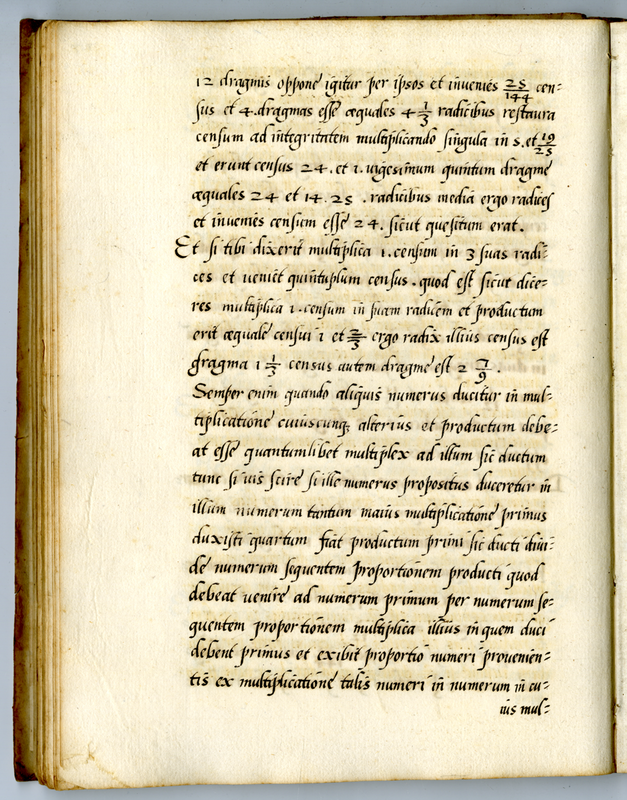 12 dragmis oppone igitur per ipsos et inveniēs 25/144 cen:
sus et 4. dragmas esse æquales 4 1/3 radicibus restaura
censum ad integritatem multiplicando singula in 5. et 19/25
et erunt census 24. et 1. vigesimum quintum dragme
æquales 24 et 14. 25 . radicibus media ergo radices
et inveniēs censum esse 24. sicut quesitum erat.
Et si tibi dixerit multiplica 1. censum in 3 suas radi:
ces et veniet quintuplum census. quod est sicut dice:
res multiplica 1. censum in suam radicem et productum
erit æquale censui 1 et 2/3 ergo radix illius census est
dragma 1 1/3 census autem dragme est 2 7/9.
Semper enim quando aliquis numerus ducitur in mul:
tiplicatione cuiuscunq; alterius et productum debe:
at esse quantumlibet multiplex ad illum sic ductum
tunc si vis scire si ille numerus propositus duceretur in
illum numerum tantum maius multiplicatione primus
duxisti quartum fiat productum primi sic ducti divi:
de numerum sequentem proportionem producti quod
debeat venire ad numerum primum per numerum se:
quentem proportionem multiplica illius in quem duci
debent primus et exibit proportio numeri provenien:
tis ex multiplicatione talis numeri in numerum in cu:
ius mul: